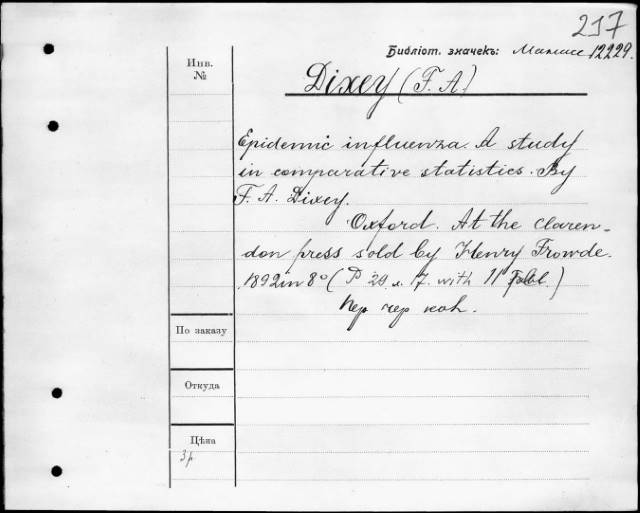 217
Библіот. значекъ: 12229.
Инв.
№
Dixey (F. A)
Epidemic influenza. A study
in comparative statistics. By
F. A. Dixey.
Oxford. At the claren-
don press sold by Henry Frowde.
1892 in 8° (P 29 17. with 11 Tabl.)
Пер чер кож.
По заказу
Откуда
Цѣна
3 р